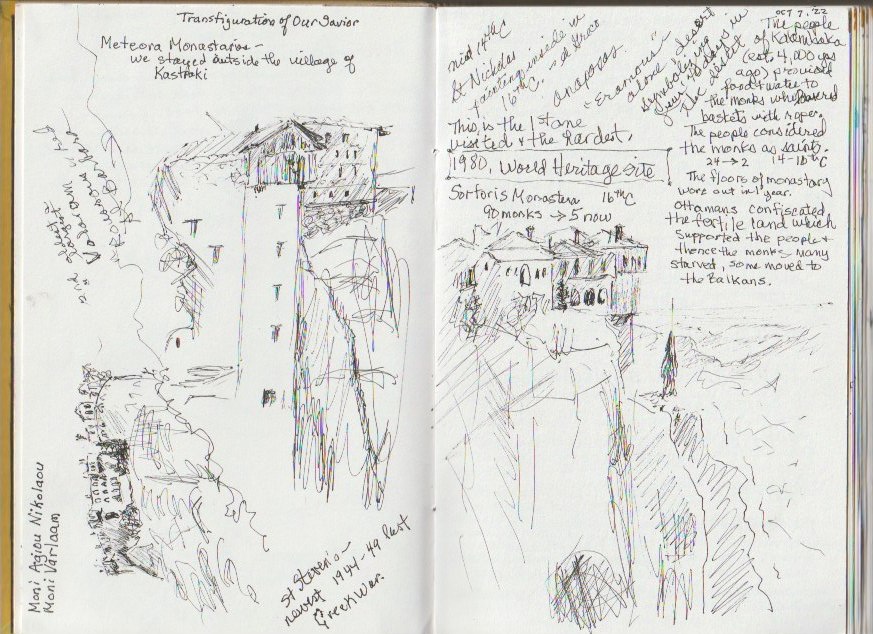 Transfiguration of Our Savior
Meteora Monastaries –
we stayed outside the village of
Kastraki
2nd oldest
largest
Varlaam
Moni Agiou Nikolaou
Moni Varlaam
St Steven's –
newest 1944-49 last
Greek War.
mid 14thC
St Nicholas
painting inside in
16thC.
anapavsas
"Eramous"
alone desert
symbolizing
Jesus' 40 days in
the desert
This is the 1st one
visited & the hardest.
1980, World Heritage site
Sortoris Monastera 16thC
90 monks → 5 now
OCT 7, 22
The people
of Kalambaka
(est. 4,000 yrs
ago) provided
food & water to
the monks who lowered
baskets with ropes.
The people considered
the monks as saints.
24 → 2 14-16thC
The floors of monastary
wore out in 1 year.
Ottamans confiscated
the fertile land which
supported the people &
thence the monks. Many
starved, some moved to
the Balkans.